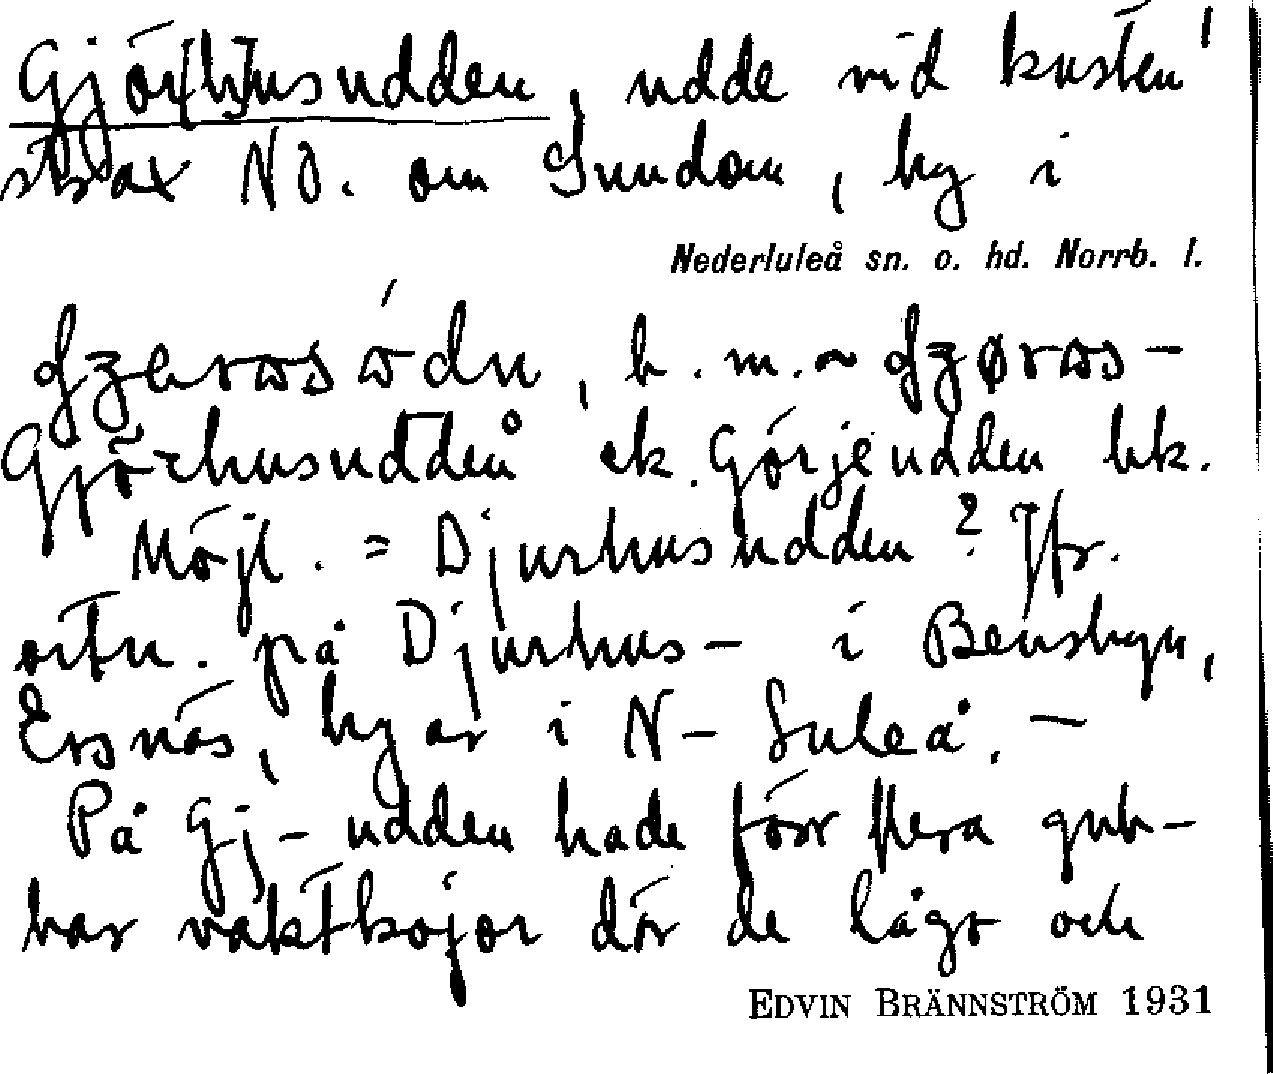 Gjör[h]usudden, udde vid kusten
strax NO. om Sundom, by i
Nederluleå sn. o. hd. Norrb. l.
b. m. ~
Gjörhusudden ek. Görjeudden bk.
Möjl. = Djurhusudden? Jfr.
ortn. på Djurhus- i Bensbyn,
Ersnäs, byar i N-Luleå. –
På Gj-udden hade förr flera gub-
bar vaktkojor där de lågo och
EDVIN BRÄNNSTRÖM 1931